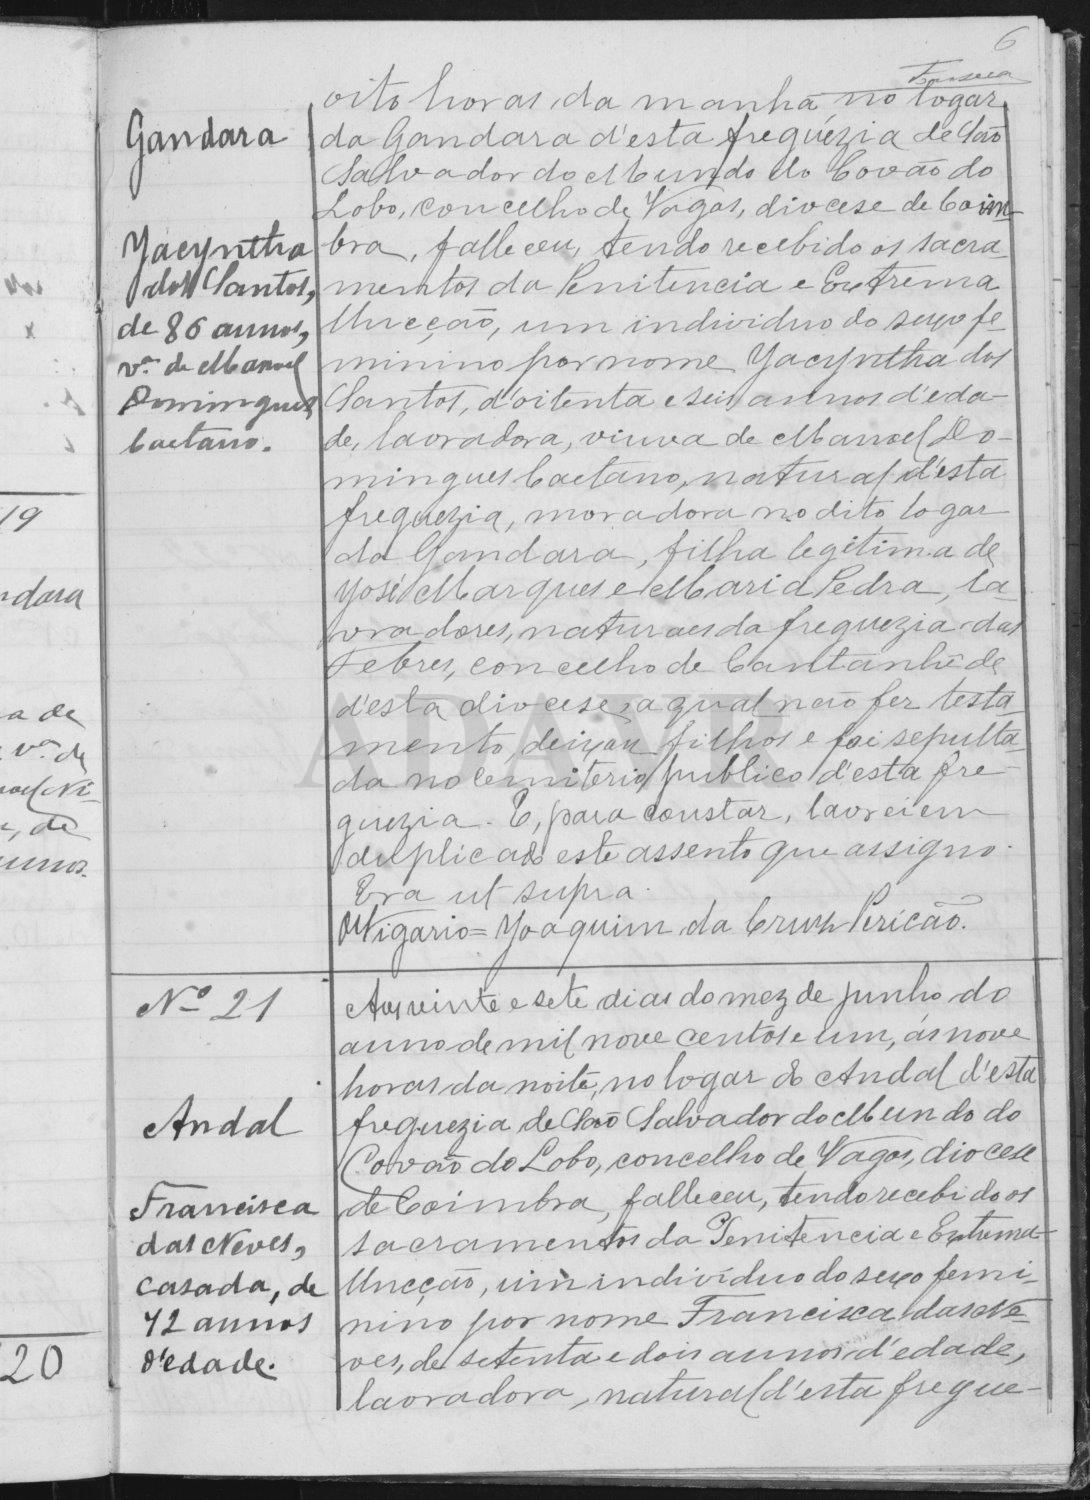 6
Fonseca
Gandara
Yacyntha
dos Santos,
de 86 annos,
v.ª de Manoel
Domingues
Caetano.
oito horas da manhã no logar
da Gandara d'esta freguezia de São
Salvador do Mundo do Covão do
Lobo, concelho de Vagos, diocese de Coim-
bra, falleceu, tendo recebido os sacra
mentos da Penitencia e Extrema
Uncção, um individuo do sexo fe-
minino por nome Yacyntha dos
Santos, d'oitenta e seis annos d'eda-
de, lavradora, viuva de Manoel Do-
mingues Caetano, natural d'esta
freguezia, moradora no dito logar
da Gandara, filha legitima de
José Marques e Maria Pedra, la-
vradores, naturaes da freguezia das
Febres, concelho de Cantanhêde
d'esta diocese, a qual não fez testa-
mento, deixou filhos e foi sepulta-
da no cemiterio publico d'esta fre-
guezia. E, para constar, lavrei em
duplicado este assento que assigno.
Era ut supra.
O Vigario = Joaquim da Cruz Pericão.
Nº 21
Andal
Francisca
das Neves,
casada, de
72 annos
d'edade.
Aos vinte e sete dias do mez de junho do
anno de mil nove centos e um, ás nove
horas da noite, no logar do Andal d'esta
freguezia de São Salvador do Mundo do
Covão do Lobo, concelho de Vagos, diocese
de Coimbra, falleceu, tendo recebido os
sacramentos da Penitencia e Extrema-
Uncção, um individuo do sexo femi-
nino por nome Francisca das Ne-
ves, de setenta e dois annos d'edade,
lavradora, natural d'esta fregue-
19
ndara
a de
v.ª de
noel Ni-
, de
annos.
20
ADAVR